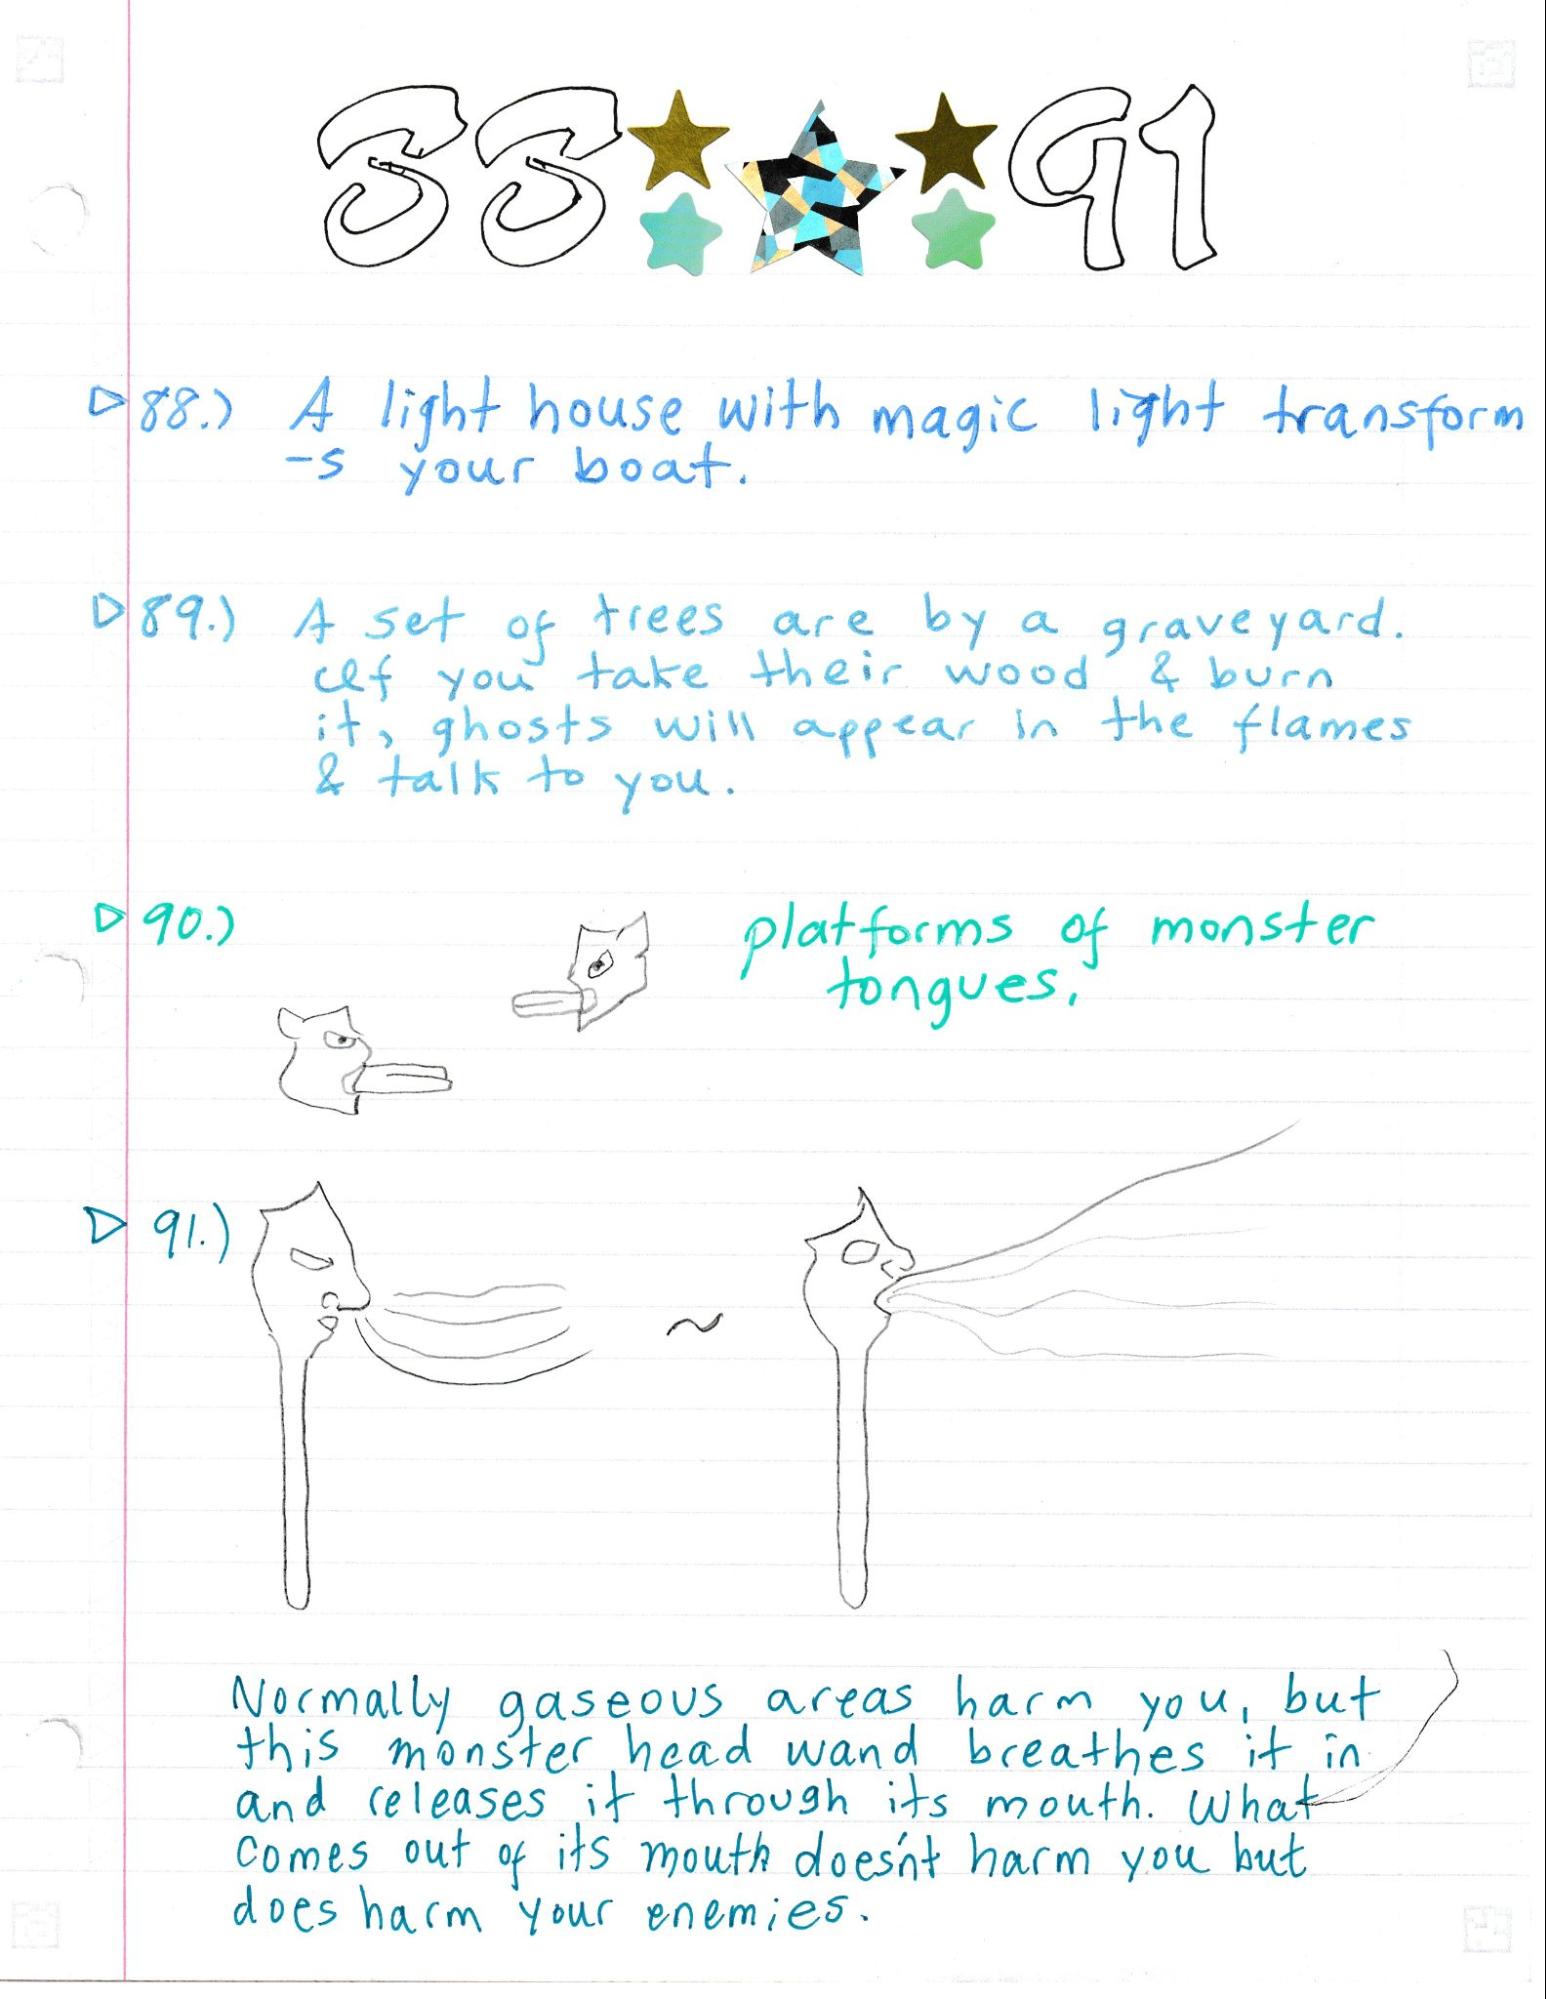 88 91
▷ 88.) A light house with magic light transform
-s your boat.
▷ 89.) A set of trees are by a graveyard.
If you take their wood & burn
it, ghosts will appear in the flames
& talk to you.
▷ 90.) platforms of monster
tongues.
▷ 91.)
~
Normally gaseous areas harm you, but
this monster head wand breathes it in
and releases it through its mouth. What
comes out of its mouth doesn't harm you but
does harm your enemies.